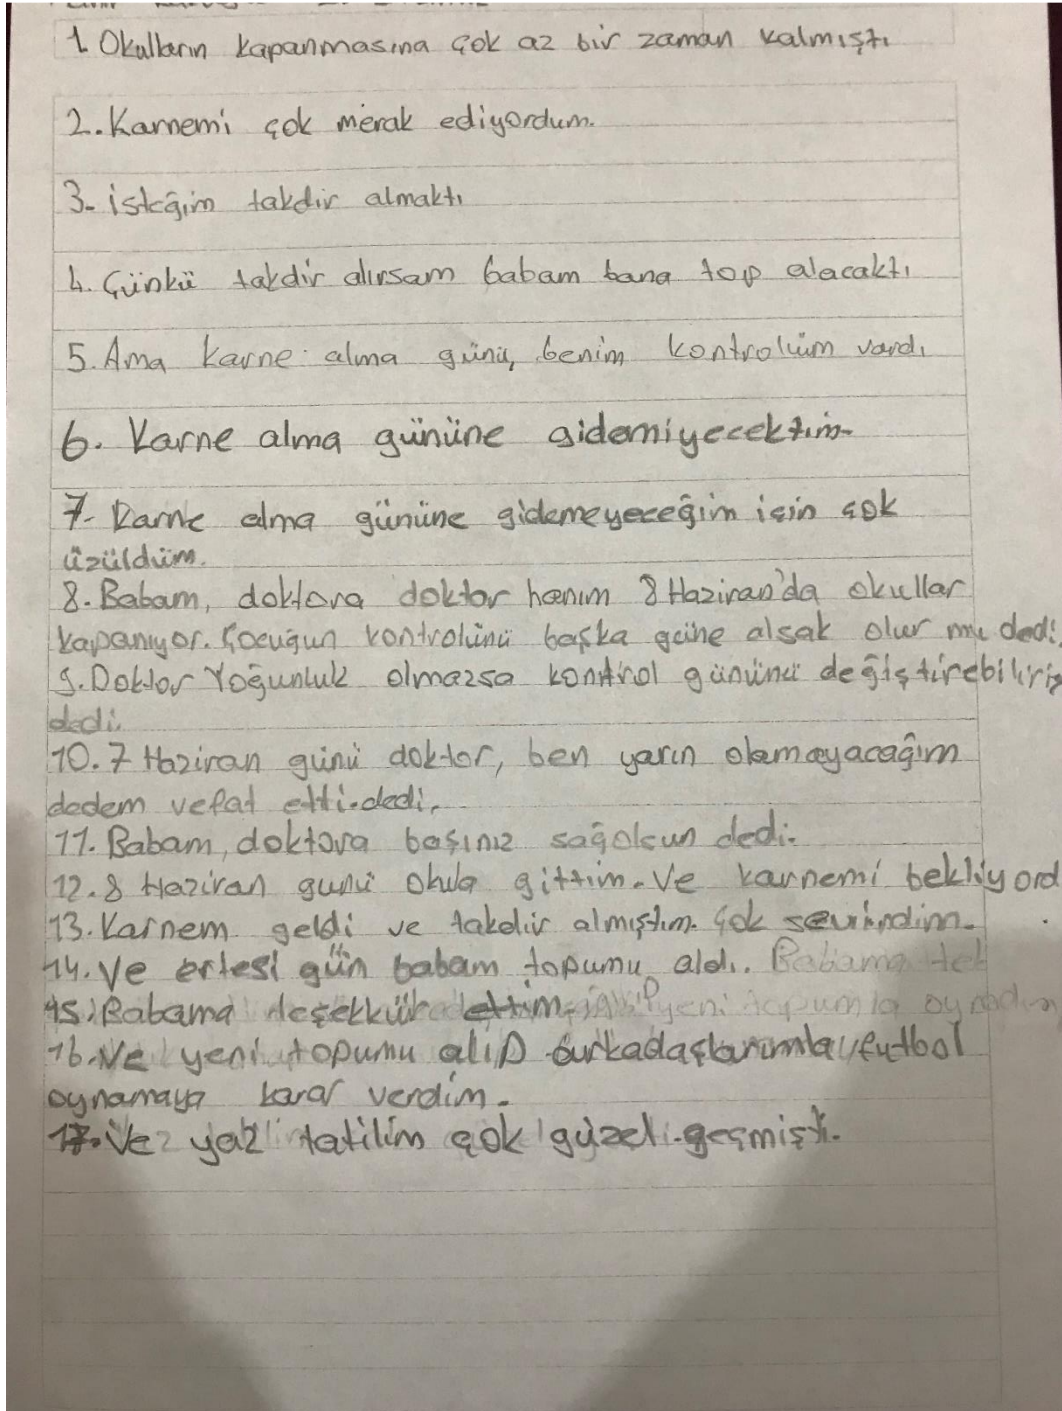 1. Okulların kapanmasına çok az bir zaman kalmıştı
2. Karnemi çok merak ediyordum.
3- isteğim takdir almaktı
4. Çünkü takdir alırsam babam bana top alacaktı
5. Ama karne alma günü, benim kontrolüm vardı
6. Karne alma gününe gidemiyecektim-
7- Karne alma gününe gidemeyeceğim için çok
üzüldüm.
8. Babam, doktora doktor hanım 8 Haziran'da okullar
kapanıyor. Çocuğun kontrolünü başka güne alsak olur mu dedi.
9. Doktor Yoğunluk olmazsa kontrol gününü değiştirebiliriz
dedi.
10. 7 Haziran günü doktor, ben yarın olamayacağım
dedem vefat etti dedi.
11. Babam, doktora başınız sağolsun dedi.
12. 8 Haziran günü okula gittim. Ve karnemi bekliyord
13. Karnem geldi ve takdir almıştım. Çok sevindim.
14. Ve ertesi gün babam topumu aldı. Babama
15. Babama teşekkür ettim. yeni topumla oynadım
16. Ve yeni topumu alıp arkadaşlarımla futbol
oynamaya karar verdim.
17. Ve yaz tatilim çok güzel geçmişti.